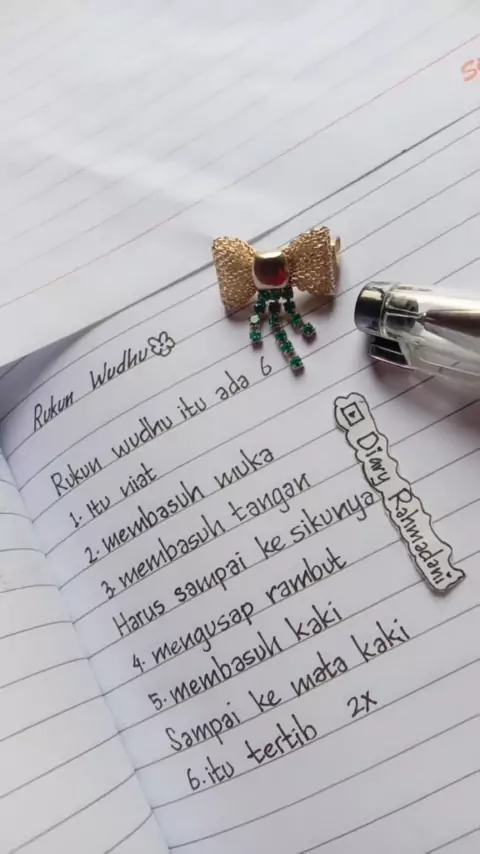 Rukun Wudhu
Rukun wudhu itu ada 6
1. Itu niat
2. membasuh muka
3. membasuh tangan
Harus sampai ke sikunya
4. mengusap rambut
5. membasuh kaki
Sampai ke mata kaki
6. itu tertib 2x
Diary Rahmadani